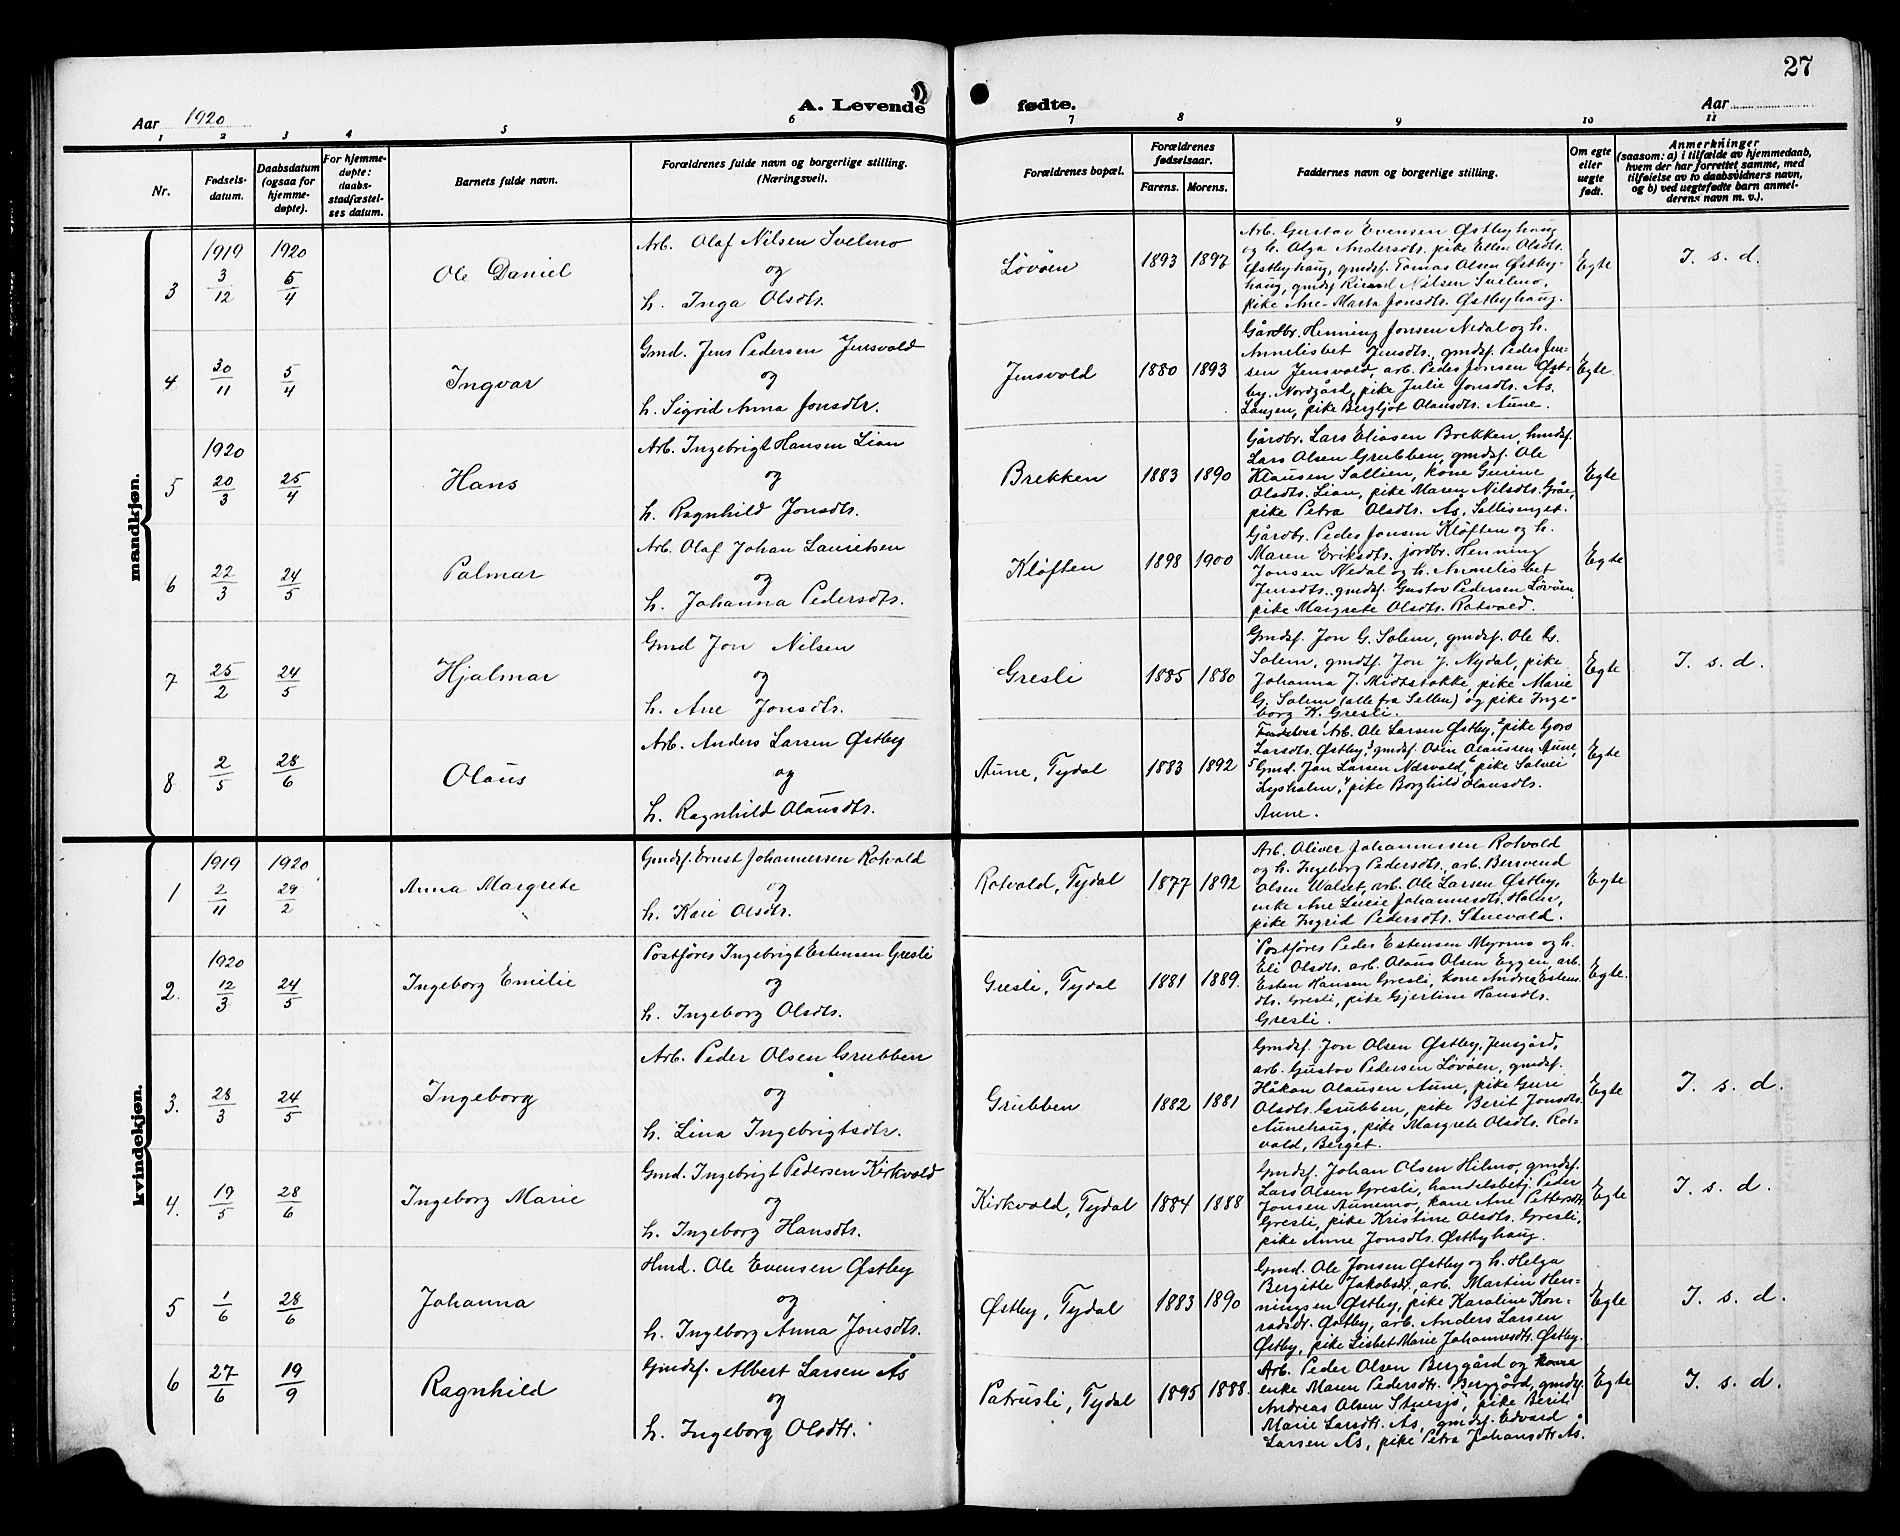 27
A. Levende fødte.
Aar 1920
Aar
1 2 3 4 5 6 7 8 9 10 11
Nr.
Fødsels-
datum.
Daabsdatum
(ogsaa for
hjemme-
døpte).
For hjemme-
døpte:
daabs-
stadfæstel-
ses datum.
Barnets fulde navn.
Forældrenes fulde navn og borgerlige stilling.
(Næringsvei).
Forældrenes bopæl.
Forældrenes
fødselsaar.
Farens. Morens.
Faddernes navn og borgerlige stilling.
Om egte
eller
uegte
født.
Anmerkninger
(saasom: a) i tilfælde av hjemmedaab,
hvem der har forrettet samme, med
tilføielse av to daabsvidners navn,
og b) ved uegtefødte barn anmel-
derens navn m. v.).
mandkjøn.
3
1919 3/12
1920 5/4
Ole Daniel
Arb. Olaf Nilsen Svelmo
og
h. Inga Olsdtr.
Løvøen
1893 1897
Arb. Gustav Evensen Østbyhaug
og h. Olga Andersdtr. pike Ellen Olsdtr.
Østbyhaug, gmdsf. Tomas Olsen Østby-
haug, gmdsf. Rikard Nilsen Svelmo,
pike Ane-Marta Jonsdtr. Østbyhaug.
Egte
I. s. d.
4
30/11
5/4
Ingvar
Gmd. Jens Pedersen Jensvold
og
h. Sigrid Anna Jonsdtr.
Jensvold
1880 1893
Gårdbr. Henning Jonsen Nedal og h.
Annelisbet Jensdtr., gmdsf. Peder Jen-
sen Jensvold, arb. Peder Jonsen Øst-
by, Nordgård, pike Julie Jonsdtr. Ås,
Langen, pike Bergljot Olausdtr. Aune.
Egte.
5
1920 20/3
25/4
Hans
Arb. Ingebrigt Hansen Lian
og
h. Ragnhild Jonsdtr.
Brekken
1883 1890
Gårdbr. Lars Eliasen Brekken, hmdsf.
Lars Olsen Grubben, gmdsf. Ole
Klausen Sallien, kone Gurine
Olsdtr. Lian, pike Maren Nilsdtr. Gråe,
pike Petra Olsdtr. Ås, Sellisenget.
Egte
6
22/3
24/5
Palmar
Arb. Olaf Johan Lauritsen
og
h. Johanna Pedersdtr.
Kløften
1898 1900
Gårdbr. Peder Jonsen Kløften og h.
Maren Eriksdtr. jordbr. Henning
Jonsen Nedal og h. Annelisbet
Jensdtr. gmdsf. Gustav Pedersen Løvøen
pike Margrete Olsdtr. Rotvold.
Egte
7
25/2
24/5
Hjalmar
Gmd Jon Nilsen
og
h. Ane Jonsdtr.
Gresli
1885 1880
Gmdsf. Jon G. Solem, gmdsf. Ole G.
Solem, gmdsf. Jon J. Nydal, pike
Johanna J. Midtstokke, pike Marie
G. Solem (alle fra Selbu) og pike Inge-
borg K. Gresli.
Egte
I. s. d.
8
2/5
28/6
Olaus
Arb. Anders Larsen Østby
og
h. Ragnhild Olausdtr.
Aune, Tydal
1883 1892
Arb. Ole Larsen Østby, pike Goro
Larsdtr. Østby, gmdsf. Odin Olaussen Aune,
Gmd. Jon Larsen Næsvold, pike Solvei
Lysholm, pike Borghild Olausdtr.
Aune.
Egte
kvindekjøn.
1
1919 2/11
1920 29/2
Anna Margrete
Gmdsf. Ernst Johannessen Rotvold
og
h. Kari Olsdtr.
Rotvold, Tydal
1877 1892
Arb. Oliver Johannessen Rotvold
og h. Ingeborg Pedersdtr. arb. Bersvend
Olsen Walset, arb. Ole Larsen Østby,
enke Ane Lucie Johannesdtr. Holm,
pike Ingrid Pedersdtr. Stuevold.
Egte
2.
1920 12/3
24/5
Ingeborg Emilie
Postfører Ingebrigt Estensen Gresli
og
h. Ingeborg Olsdtr.
Gresli, Tydal
1881 1889.
Postfører Peder Estensen Myrmo og h.
Eli Olsdtr. arb. Olaus Olsen Eggen, arb.
Esten Hansen Gresli, kone Andrea Estens-
dtr. Gresli, pike Gjertine Hansdtr.
Gresli.
Egte.
3.
28/3
24/5
Ingeborg
Arb. Peder Olsen Grubben
og
h. Lina Ingebrigtsdtr.
Grubben
1882 1881
Gmdsf. Jon Olsen Østby, Jensgård,
arb. Gustav Pedersen Løvøen, gmdsf.
Håkon Olausen Aune, pike Guri
Olsdtr. Grubben, pike Berit Jonsdtr.
Aunehaug, pike Margrete Olsdtr. Rot-
vold, Berget.
Egte
I. s. d.
4.
19/5
28/6
Ingeborg Marie
Gmd. Ingebrigt Pedersen Kirkvold
og
h. Ingeborg Hansdtr.
Kirkvold, Tydal
1884 1888
Gmdsf. Johan Olsen Hilmo, gmdsf.
Lars Olsen Gresli, handelsbetj. Peder
Jonsen Aunemo, kone Ane Pettersdtr.
Gresli, pike Kristine Olsdtr. Gresli,
pike Anne Jonsdtr. Østbyhaug.
Egte
I. s. d.
5
1/6
28/6
Johanna
Hmd. Ole Evensen Østby
og
h. Ingeborg Anna Jonsdtr.
Østby, Tydal
1883 1890
Gmd. Ole Jonsen Østby og h. Helga
Bergitte Jakobsdtr. arb. Martin Hen-
ningsen Østby, pike Karoline Kon-
radsdtr. Østby, arb. Anders Larsen
Østby, pike Lisbet Marie Johannesdtr. Østby.
Egte
I. s. d.
6
27/6
19/9
Ragnhild
Gmdsf. Albert Larsen Ås
og
h. Ingeborg Olsdtr.
Patrusli, Tydal
1895 1888.
Arb. Peder Olsen Berggård og
enke Maren Pedersdtr. Berggård, gmdsf.
Andreas Olsen Stuesjø, pike Berit
Marie Larsdtr. Ås, gmdsf. Edvard
Larsen Ås, pike Petra Johansdtr. Ås.
Egte
I. s. d.